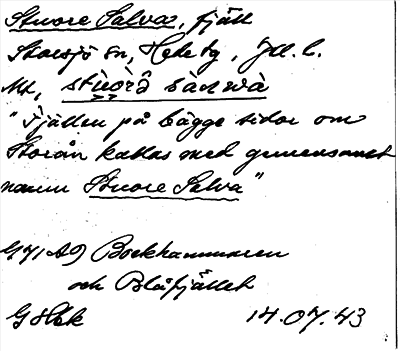 Stuore Salva, fjäll
Storsjö sn, Hede tg, Jtl. l.
Ml, stùòrâ sàlwà
"Fjällen på bägge sidor om
Storån kallas med gemensamt
namn Stuore Salva"
G 71 A9 Bockhammaren
och Blåfjället
14.07.43